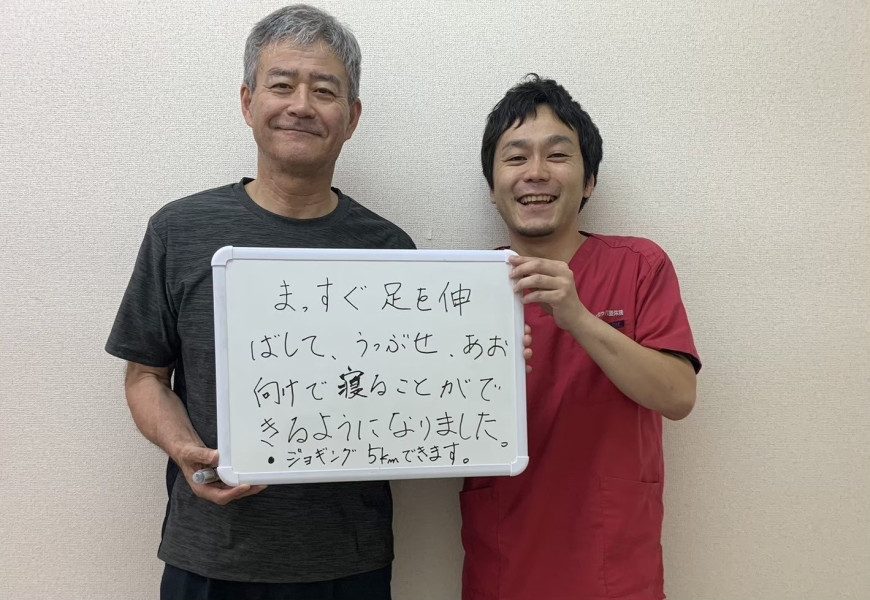 まっすぐ足を伸
ばして、うつぶせ、あお
向けで寝ることができ
きるようになりました。
• ジョギング 5kmできます。